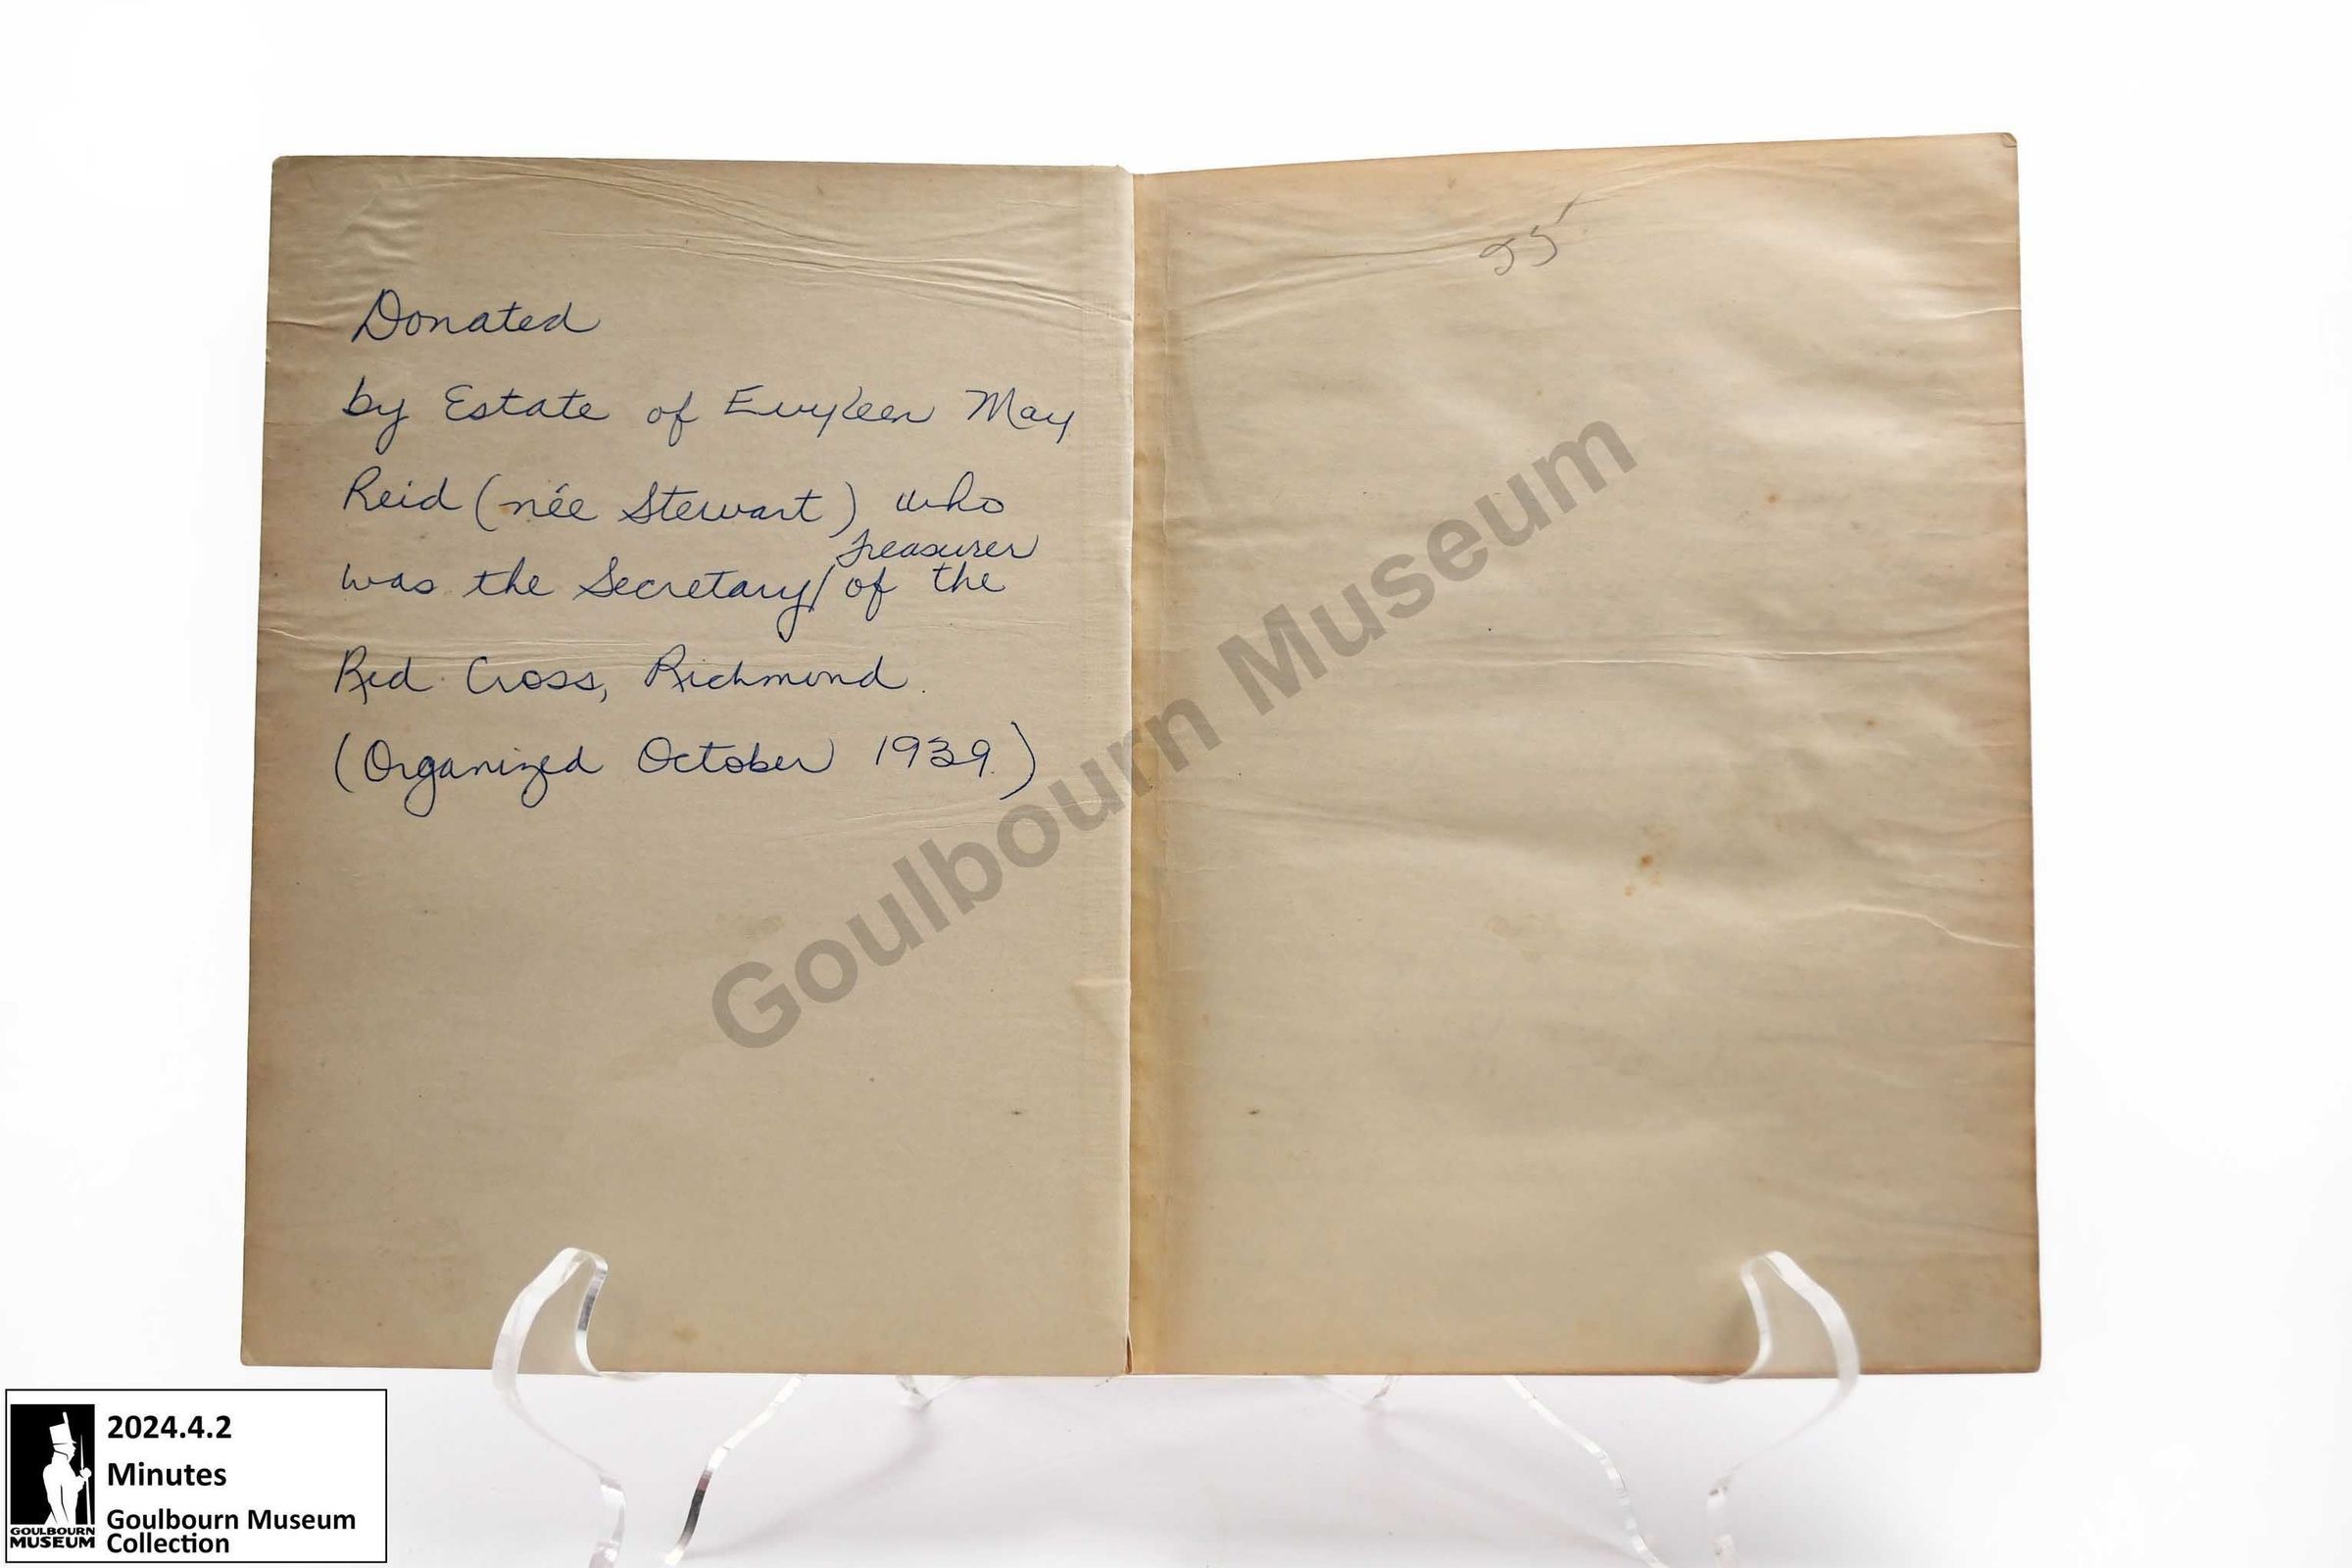 Donated
by Estate of Evyleen May
Reid (née Stewart) who
was the Secretary/Treasurer of the
Red Cross, Richmond.
(Organized October 1939.)
Goulbourn Museum
2024.4.2
Minutes
Goulbourn Museum
Collection
GOULBOURN
MUSEUM